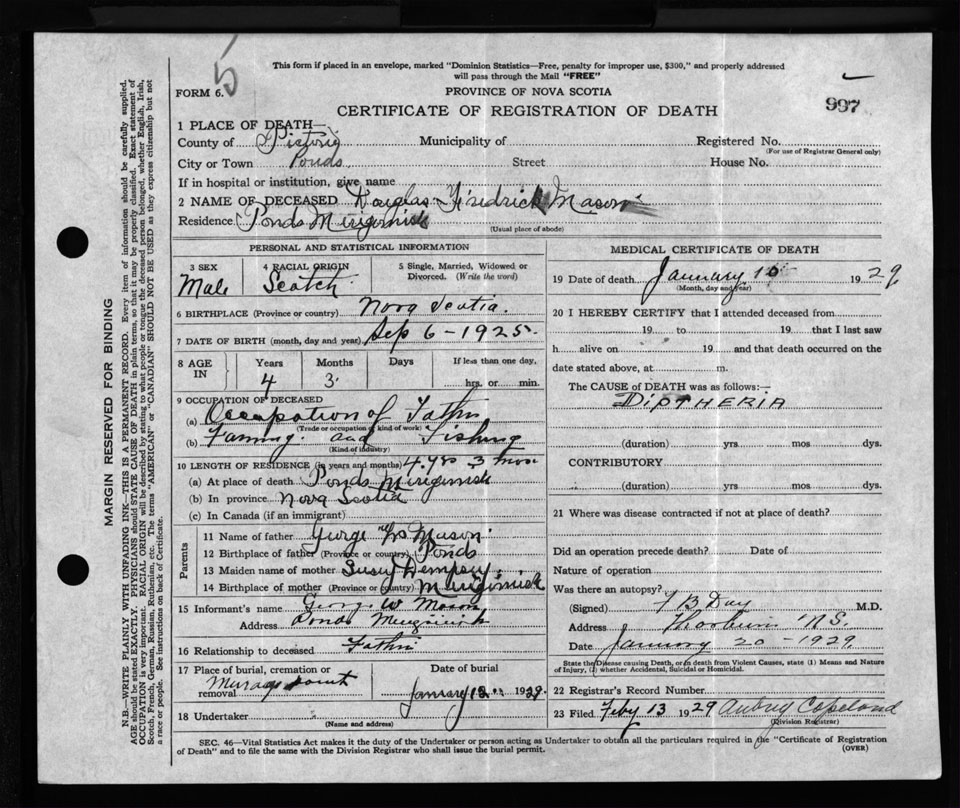 5
This form if placed in an envelope, marked "Dominion Statistics—Free, penalty for improper use, $300," and properly addressed
will pass through the Mail "FREE"
FORM 6.
PROVINCE OF NOVA SCOTIA
997
CERTIFICATE OF REGISTRATION OF DEATH
1 PLACE OF DEATH—
County of Pictou Municipality of Registered No.
(For use of Registrar General only)
City or Town Ponds Street House No.
If in hospital or institution, give name
2 NAME OF DECEASED Douglas Fredrick Mason
Residence Ponds Merigomish
(Usual place of abode)
PERSONAL AND STATISTICAL INFORMATION
3 SEX
Male
4 RACIAL ORIGIN
Scotch
5 Single, Married, Widowed or
Divorced. (Write the word)
6 BIRTHPLACE (Province or country) Nova Scotia
7 DATE OF BIRTH (month, day and year) Sep 6-1925
8 AGE
IN
Years
4
Months
3
Days
If less than one day,
hrs. or min.
9 OCCUPATION OF DECEASED
(a) Occupation of Father
(Trade or occupation or kind of work)
(b) Farming and Fishing
(Kind of industry)
10 LENGTH OF RESIDENCE (in years and months) 4 yrs 3 mos
(a) At place of death Ponds Merigomish
(b) In province Nova Scotia
(c) In Canada (if an immigrant)
Parents
11 Name of father George W Mason
12 Birthplace of father (Province or country) Ponds
13 Maiden name of mother Susy Dempsey
14 Birthplace of mother (Province or country) Merigomish
15 Informant's name George W Mason
Address Ponds Merigomish
16 Relationship to deceased Father
17 Place of burial, cremation or
removal Murray Point
Date of burial
January 12 1929
18 Undertaker
(Name and address)
MEDICAL CERTIFICATE OF DEATH
19 Date of death January 10 1929
(Month, day and year)
20 I HEREBY CERTIFY that I attended deceased from
19 to 19 that I last saw
h alive on 19 and that death occurred on the
date stated above, at m.
The CAUSE of DEATH was as follows:—
DIPTHERIA
(duration) yrs mos dys.
CONTRIBUTORY
(duration) yrs mos dys.
21 Where was disease contracted if not at place of death?
Did an operation precede death? Date of
Nature of operation
Was there an autopsy?
(Signed) F B Day M.D.
Address Thorburn N.S.
Date January 20-1929
State the Disease causing Death, or in death from Violent Causes, state (1) Means and Nature
of Injury, (2) whether Accidental, Suicidal or Homicidal.
22 Registrar's Record Number
23 Filed Feby 13 1929 Aubrey Copeland
(Division Registrar)
SEC. 46—Vital Statistics Act makes it the duty of the Undertaker or person acting as Undertaker to obtain all the particulars required in the "Certificate of Registration
of Death" and to file the same with the Division Registrar who shall issue the burial permit.
(OVER)
MARGIN RESERVED FOR BINDING
N.B.—WRITE PLAINLY WITH UNFADING INK—THIS IS A PERMANENT RECORD. Every item of information should be carefully supplied.
AGE should be stated EXACTLY. PHYSICIANS should STATE CAUSE OF DEATH in plain terms, so that it may be properly classified. Exact statement of
OCCUPATION is very important. RACIAL ORIGIN will be described by stating to what people or tongue the deceased person belonged, whether English, Irish,
Scotch, French, German, Russian, Ruthenian, etc. The terms "AMERICAN" or "CANADIAN" SHOULD NOT BE USED as they express citizenship but not
a race or people. See instructions on back of Certificate.